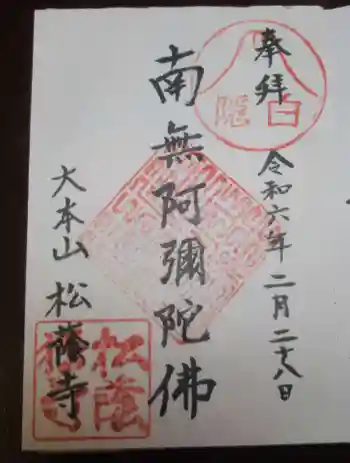 奉拝
令和六年二月二十八日
南無阿彌陀佛
大本山 松蔭寺
白隠
松蔭